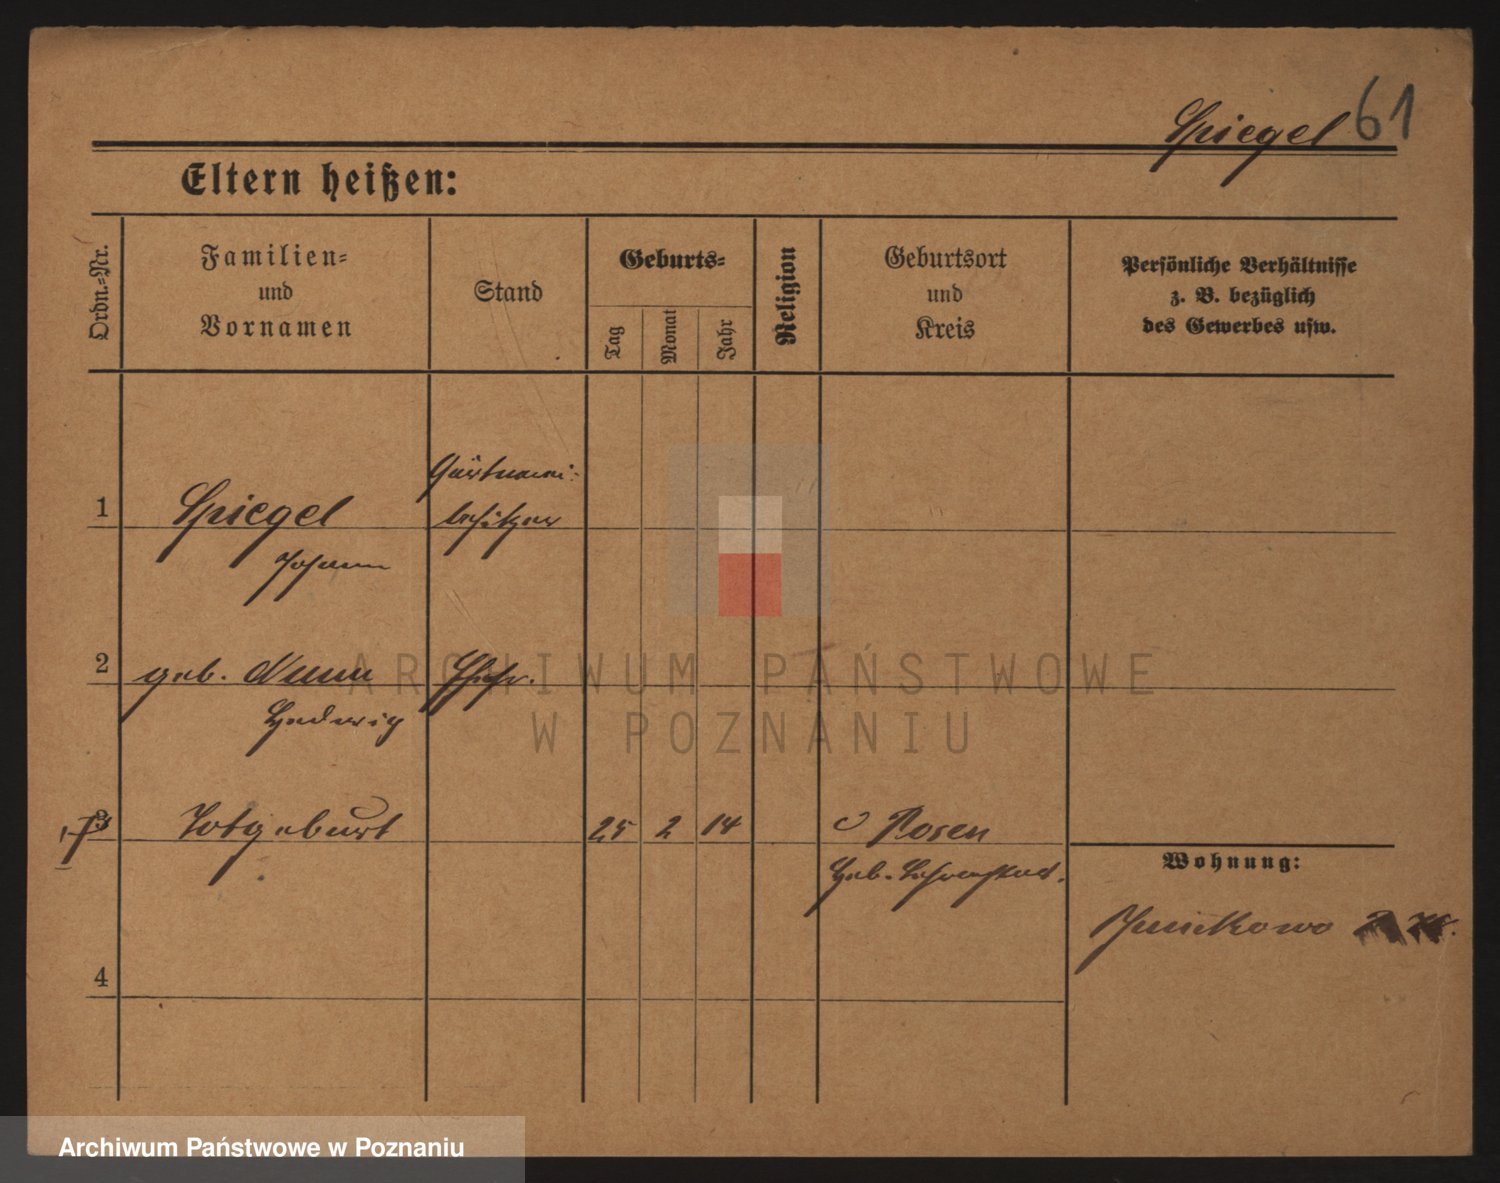 Spiegel 61
Eltern heißen:
Ordn.-Nr.
Familien=
und
Vornamen
Stand
Geburts=
Tag
Monat
Jahr
Religion
Geburtsort
und
Kreis
Persönliche Verhältnisse
z. B. bezüglich
des Gewerbes usw.
1 Spiegel
Johann
besitzer
2 geb.
Hedwig
Ehefr.
3 Totgeburt 25 2 14 Posen
Wohnung:
Junikowo
4
ARCHIWUM PAŃSTWOWE
W POZNANIU
Archiwum Państwowe w Poznaniu